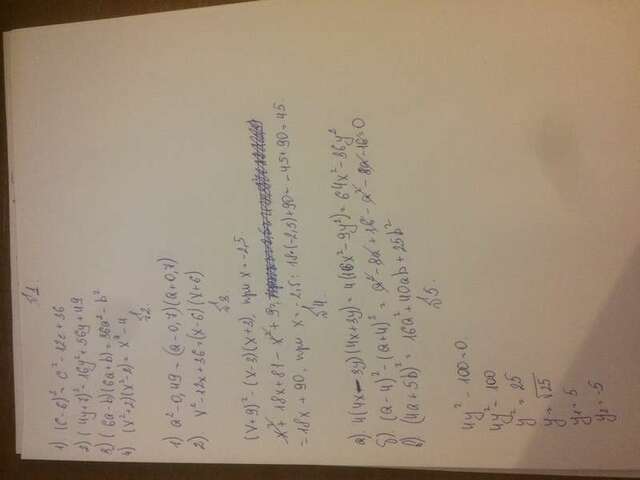 №1.
1) (c-6)² = c² - 12c + 36
2) (4y+7)² = 16y² + 56y + 49
3) (6a-b)(6a+b) = 36a² - b²
4) (x²+2)(x²-2) = x⁴ - 4
№2
1) a² - 0,49 = (a-0,7)(a+0,7)
2) x² - 12x + 36 = (x-6)(x+6)
№3
(x+9)² - (x-3)(x+3), при x = -2,5
x² + 18x + 81 - x² + 9.
= 18x + 90, при x = -2,5: 18·(-2,5) + 90 = -45 + 90 = 45.
№4.
а) 4(4x-3y)(4x+3y) = 4(16x² - 9y²) = 64x² - 36y²
б) (a-4)² - (a+4)² = a² - 8a + 16 - a² - 8a - 16 = 0
в) (4a+5b)² = 16a² + 40ab + 25b²
№5.
4y² - 100 = 0
4y² = 100
y² = 25
y = √25
y₁ = 5
y₂ = -5